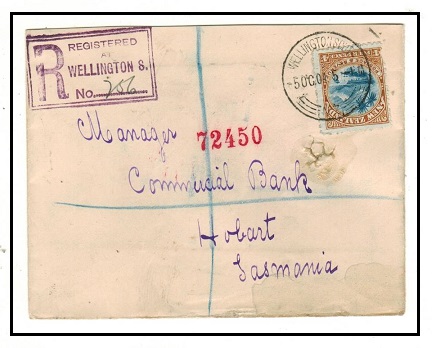 REGISTERED
AT
R WELLINGTON S.
No. 756
WELLINGTON
5 OC 04
Manager
72450
Commercial Bank
Hobart
Tasmania